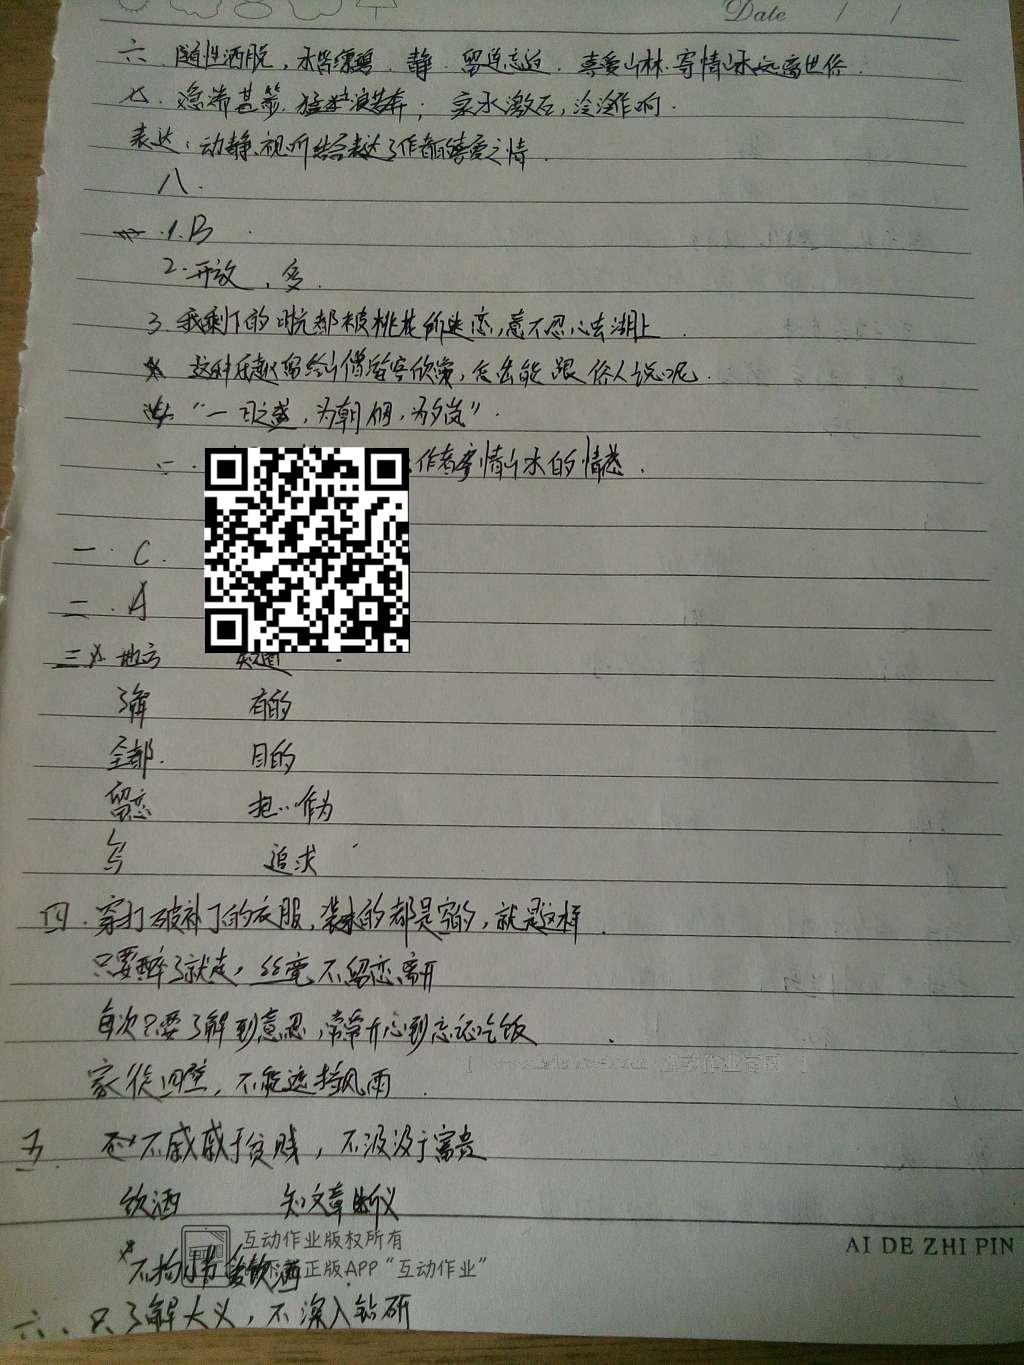 Date / /
六. 随性洒脱, 静. 留连忘返. 喜爱山林. 寄情山水远离世俗.
七. 急湍甚箭. 猛浪若奔; 泉水激石, 泠泠作响.
表达: 动静、视听结合表达了作者的喜爱之情.
八.
1. B
2. 开放, 多.
3. 我剩下的时光都被桃花所迷恋, 意不忍心去湖上
这种任趣留给山僧留客欣赏, 怎么能跟俗人说呢.
"一日之盛, 为朝烟, 为夕岚".
二. 作者寄情山水的情趣.
一. C.
二. A
三 地方 知道
了解 有的
全都. 目的
留恋 把..作为
写 追求
四. 穿打破补丁的衣服, 装水的都是空的, 就是这样.
只要醉了就走, 丝毫不留恋离开
每次只要了解到意思, 常常开心到忘记吃饭.
家徒四壁, 不能遮挡风雨.
五. 不戚戚于贫贱, 不汲汲于富贵
饮酒 知文章断义
互动作业版权所有
AI DE ZHI PIN
不拘小节 饮酒
正版APP“互动作业”
六. 只了解大义, 不深入钻研